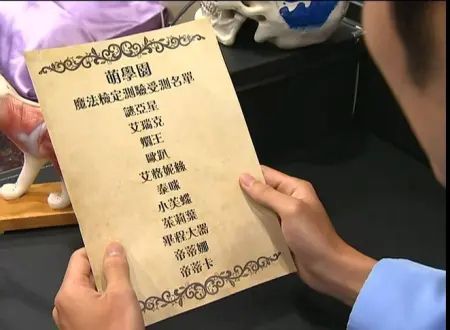 萌學園
魔法檢定測驗受測名單
謎亞星
艾瑞克
烱王
歐趴
艾格妮絲
泰咪
小芙蝶
茱莉葉
畢程大器
帝蒂娜
帝蒂卡